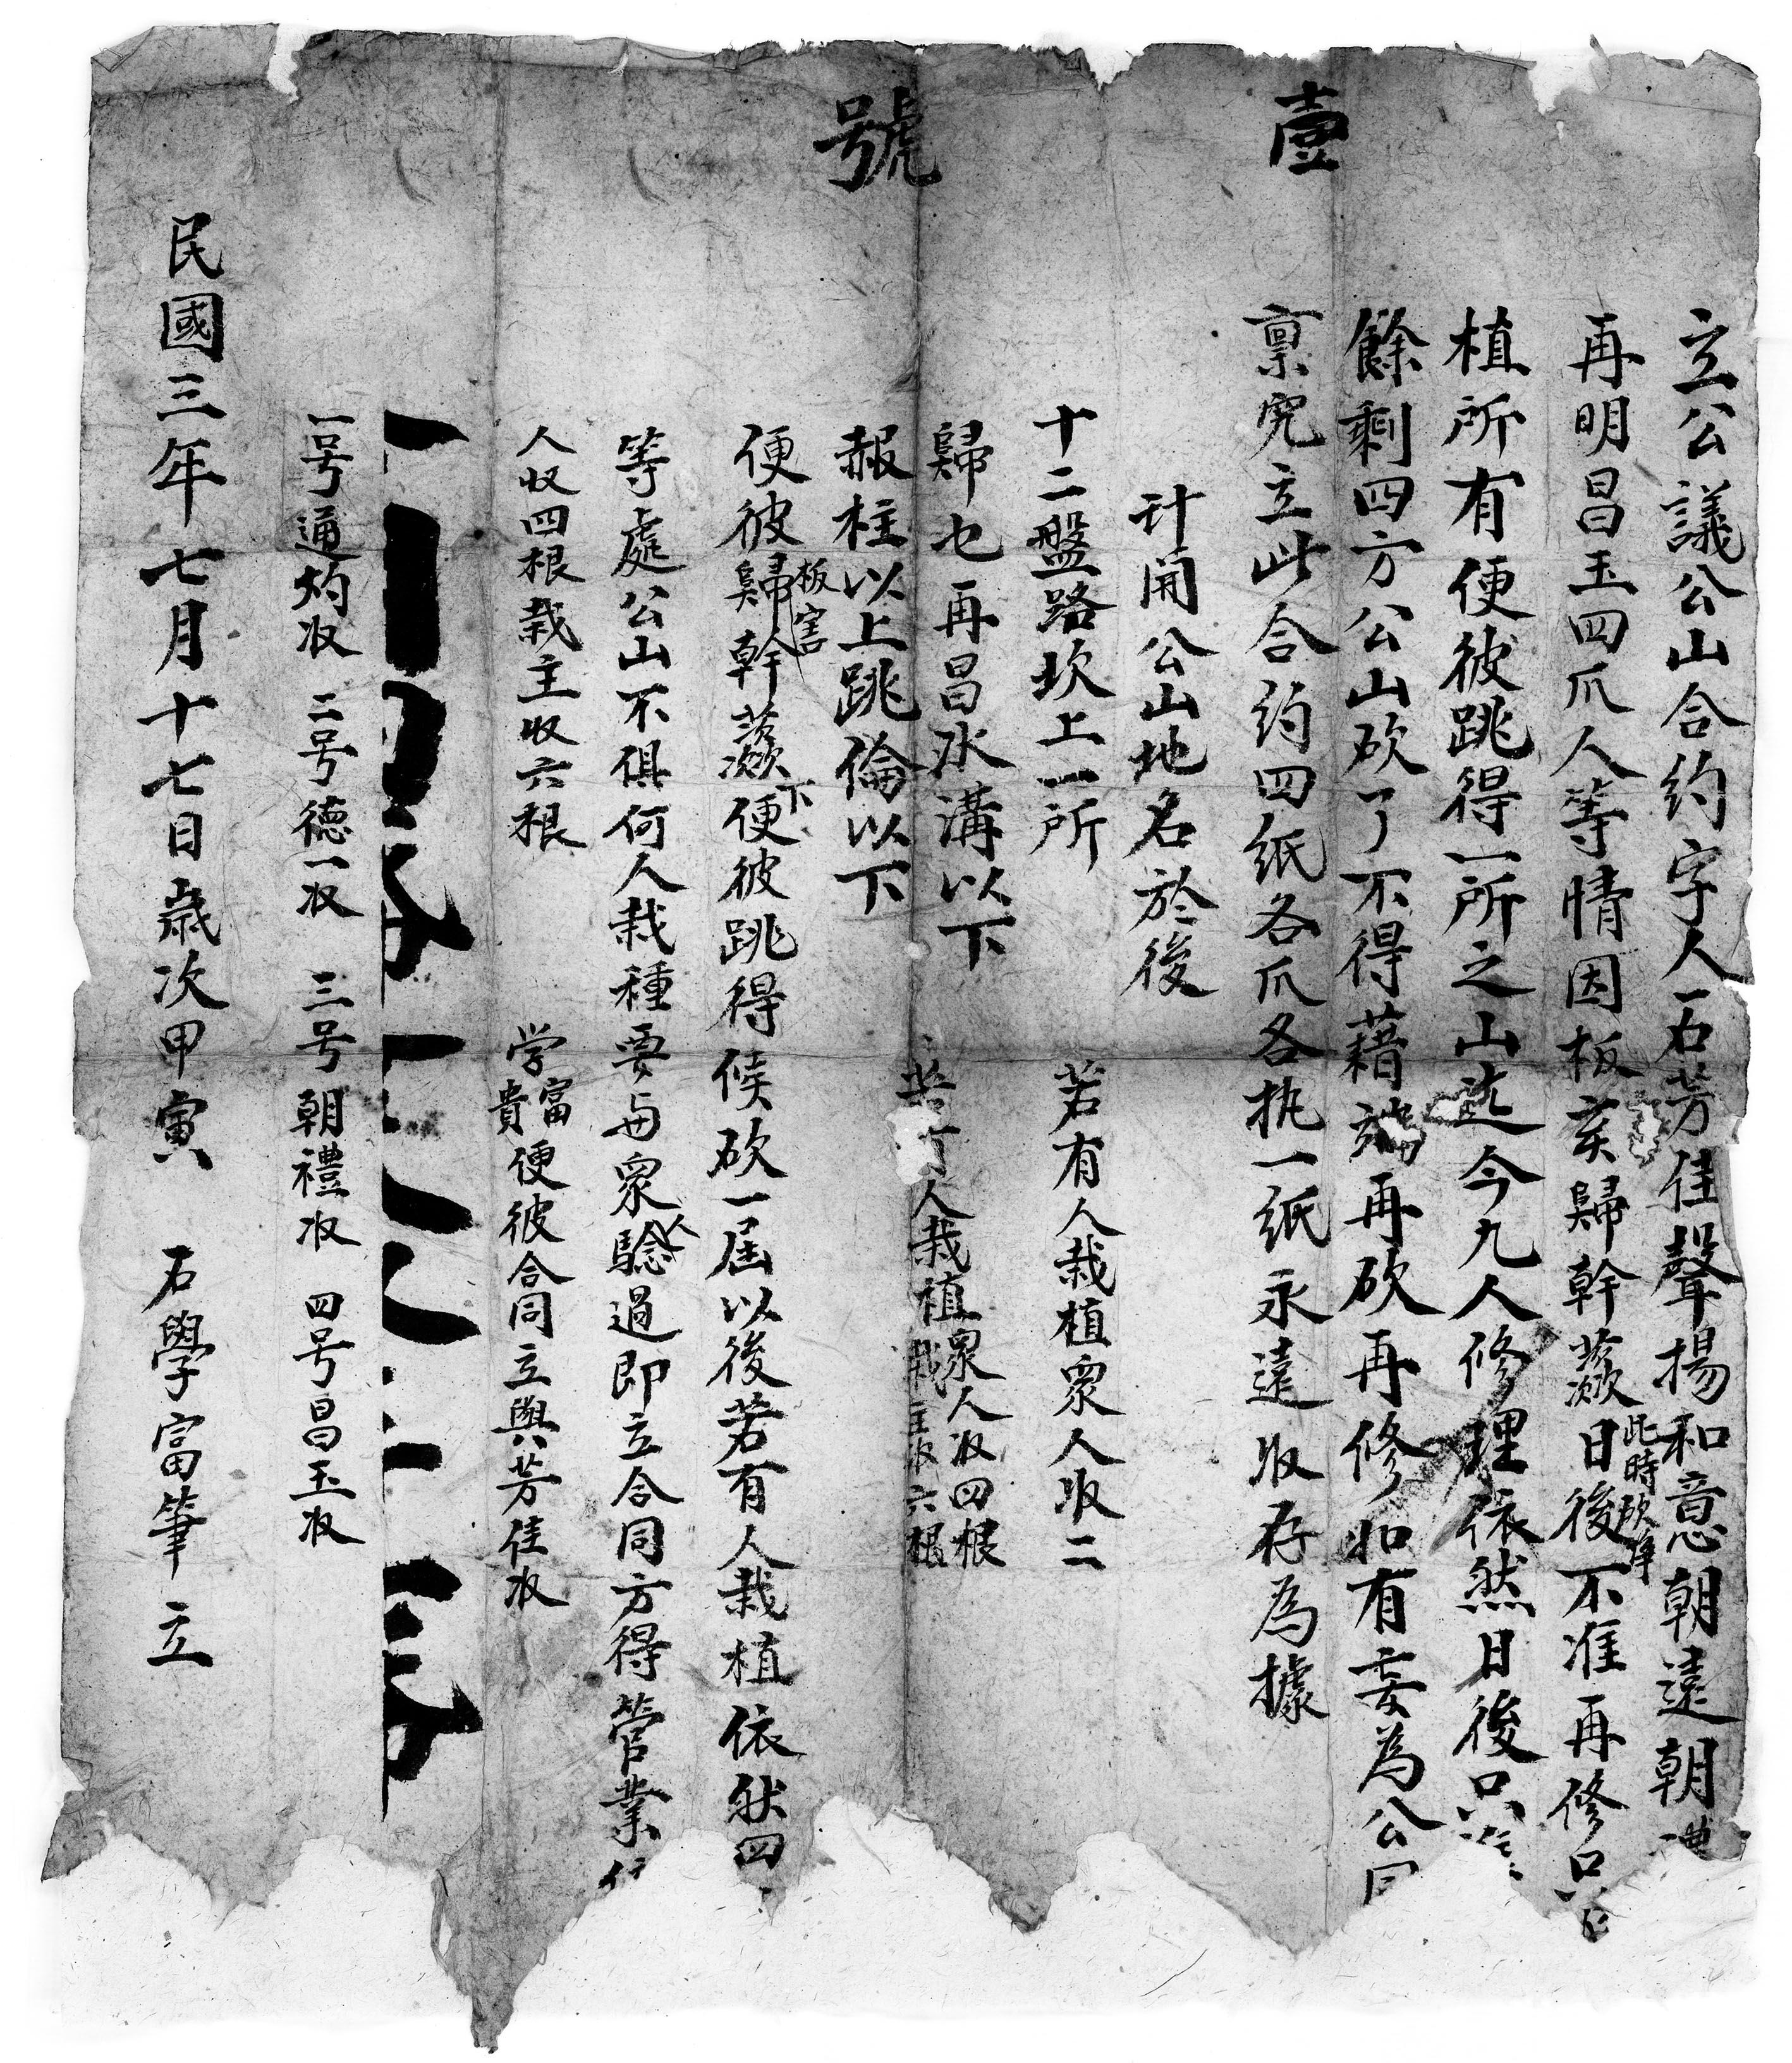 壹號
立公議公山合約字人石芳佳聲揚和意朝遠朝禮
再明昌玉四爪人等情因板亥歸幹蕨此時砍伐日後不准再修只
植所有便彼跳得一所之山迄今九人修理依然日後只
餘剩四方公山砍了不得藉端再砍再修如有妄為公同
禀究立此合約四紙各爪各执一紙永遠收存為據
计開公山地名於後
十二盤路坎上一所 若有人栽植眾人收二
歸也再昌水溝以下 人栽植眾人收四根栽主收六根
赧柱以上跳倫以下
便彼歸板害幹蕨下便彼跳得候砍一届以後若有人栽植依然四
等處公山不俱何人栽種要与眾人騐過即立合同方得管業
人收四根栽主收六根 学富貴便彼合同立與芳佳收
一号通灼收 二号德一收 三号朝禮收 四号昌玉收
民國三年七月十七日歲次甲寅 石學富筆立